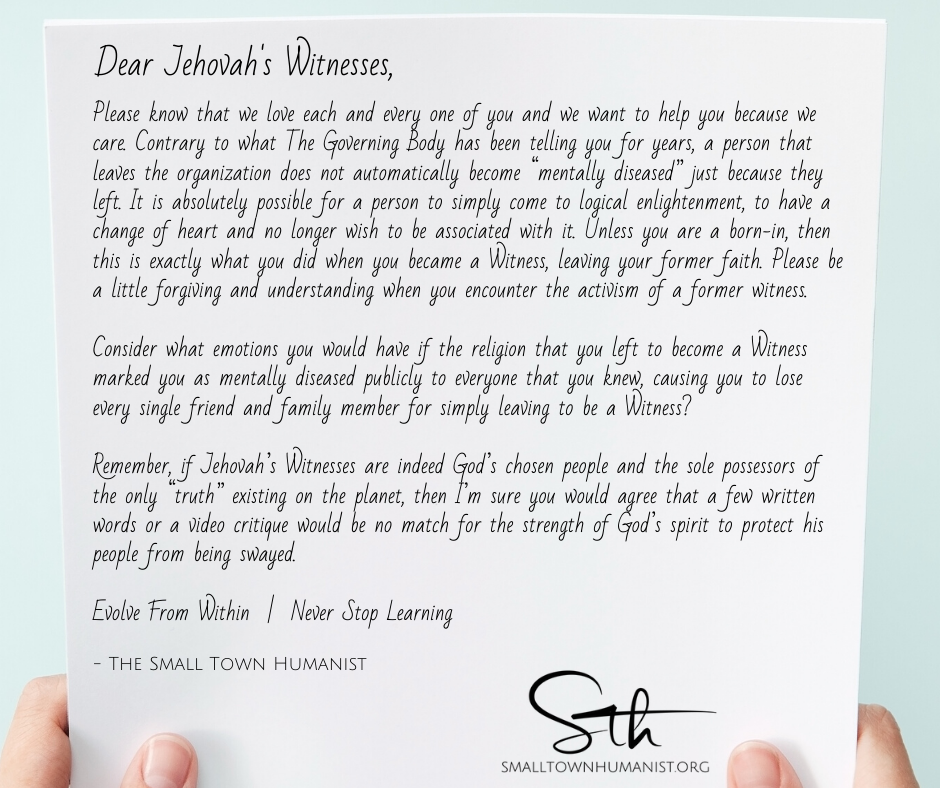 Dear Jehovah's Witnesses,
Please know that we love each and every one of you and we want to help you because we
care. Contrary to what The Governing Body has been telling you for years, a person that
leaves the organization does not automatically become “mentally diseased” just because they
left. It is absolutely possible for a person to simply come to logical enlightenment, to have a
change of heart and no longer wish to be associated with it. Unless you are a born-in, then
this is exactly what you did when you became a Witness, leaving your former faith. Please be
a little forgiving and understanding when you encounter the activism of a former witness.
Consider what emotions you would have if the religion that you left to become a Witness
marked you as mentally diseased publicly to everyone that you knew, causing you to lose
every single friend and family member for simply leaving to be a Witness?
Remember, if Jehovah’s Witnesses are indeed God’s chosen people and the sole possessors of
the only “truth” existing on the planet, then I’m sure you would agree that a few written
words or a video critique would be no match for the strength of God’s spirit to protect his
people from being swayed.
Evolve From Within | Never Stop Learning
- The Small Town Humanist
Sth
SMALLTOWNHUMANIST.ORG